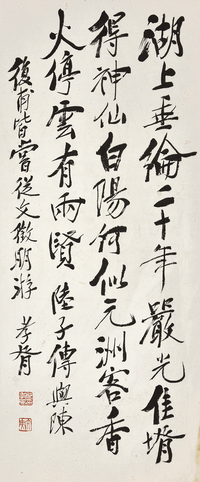 湖上垂綸二十年嚴光佳壻
得神仙白陽何似元洲客香
火停雲有兩賢 陸子傳與陳
復甫皆嘗從文徵明游 孝胥